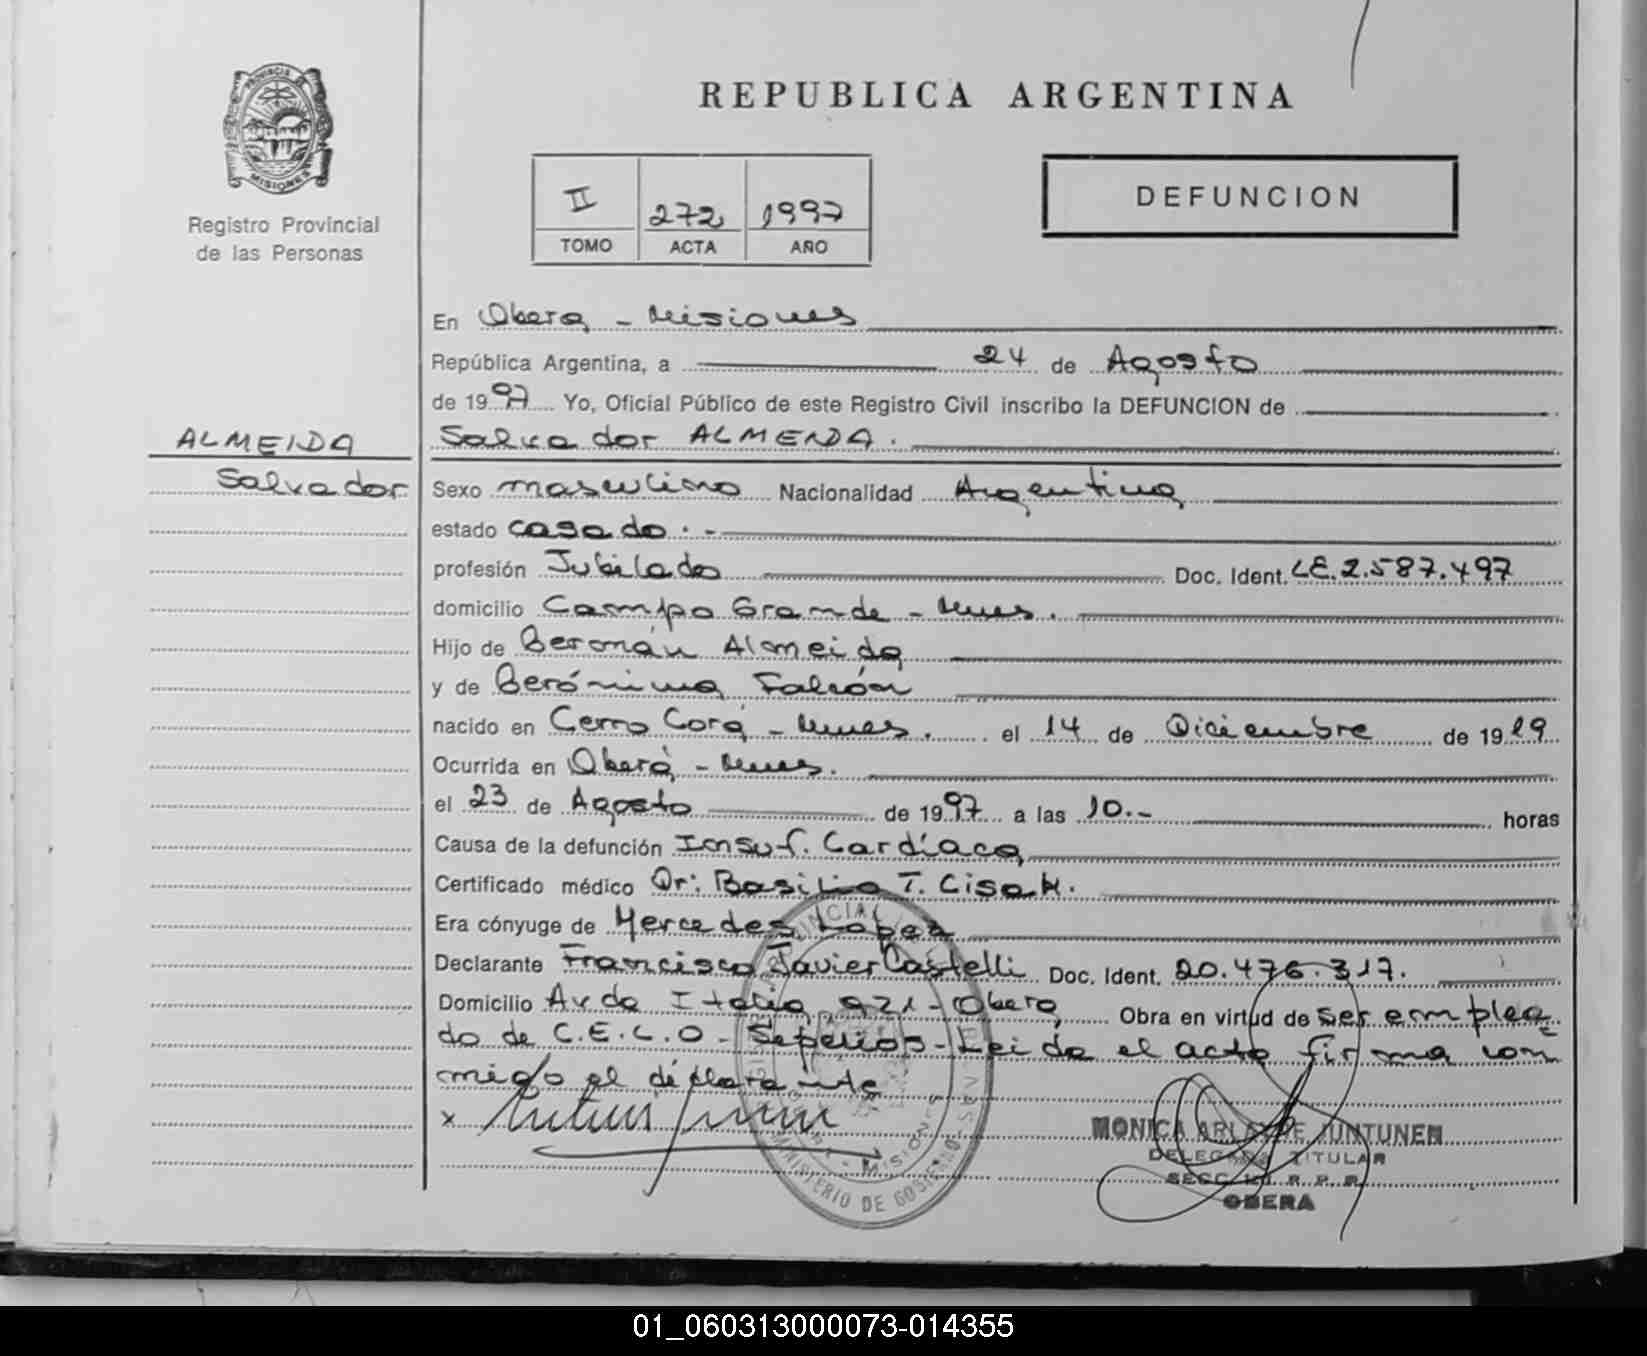 PROVINCIA DE
MISIONES
Registro Provincial
de las Personas
REPUBLICA ARGENTINA
II 272 1997
TOMO ACTA AÑO
DEFUNCION
En Oberá - Misiones
República Argentina, a 24 de Agosto
de 1997 Yo, Oficial Público de este Registro Civil inscribo la DEFUNCION de
ALMEIDA
Salvador ALMEIDA.
Salvador
Sexo masculino Nacionalidad Argentina
estado casado.-
profesión Jubilado Doc. Ident. LE.2.587.497
domicilio Campo Grande - Mnes.
Hijo de Germán Almeida
y de Gerónima Falcón
nacido en Cerro Corá - Mnes. el 14 de Diciembre de 1929
Ocurrida en Oberá - Mnes.
el 23 de Agosto de 1997 a las 10.- horas
Causa de la defunción Insuf. Cardíaca
Certificado médico Dr: Basilio T. Cisak.
Era cónyuge de Mercedes Lopez
Declarante Francisco Javier Castelli Doc. Ident. 20.476.317.
Domicilio Avda Italia 921 - Oberá Obra en virtud de ser emplea
do de C.E.L.O - Sepelios - Leida el acta firma con
migo el declarante
x
MONICA JUNTUNEN
DELEGADA TITULAR
SECC. R. P. P.
OBERA
MINISTERIO DE GOBIERNO
MISIONES
01_060313000073-014355